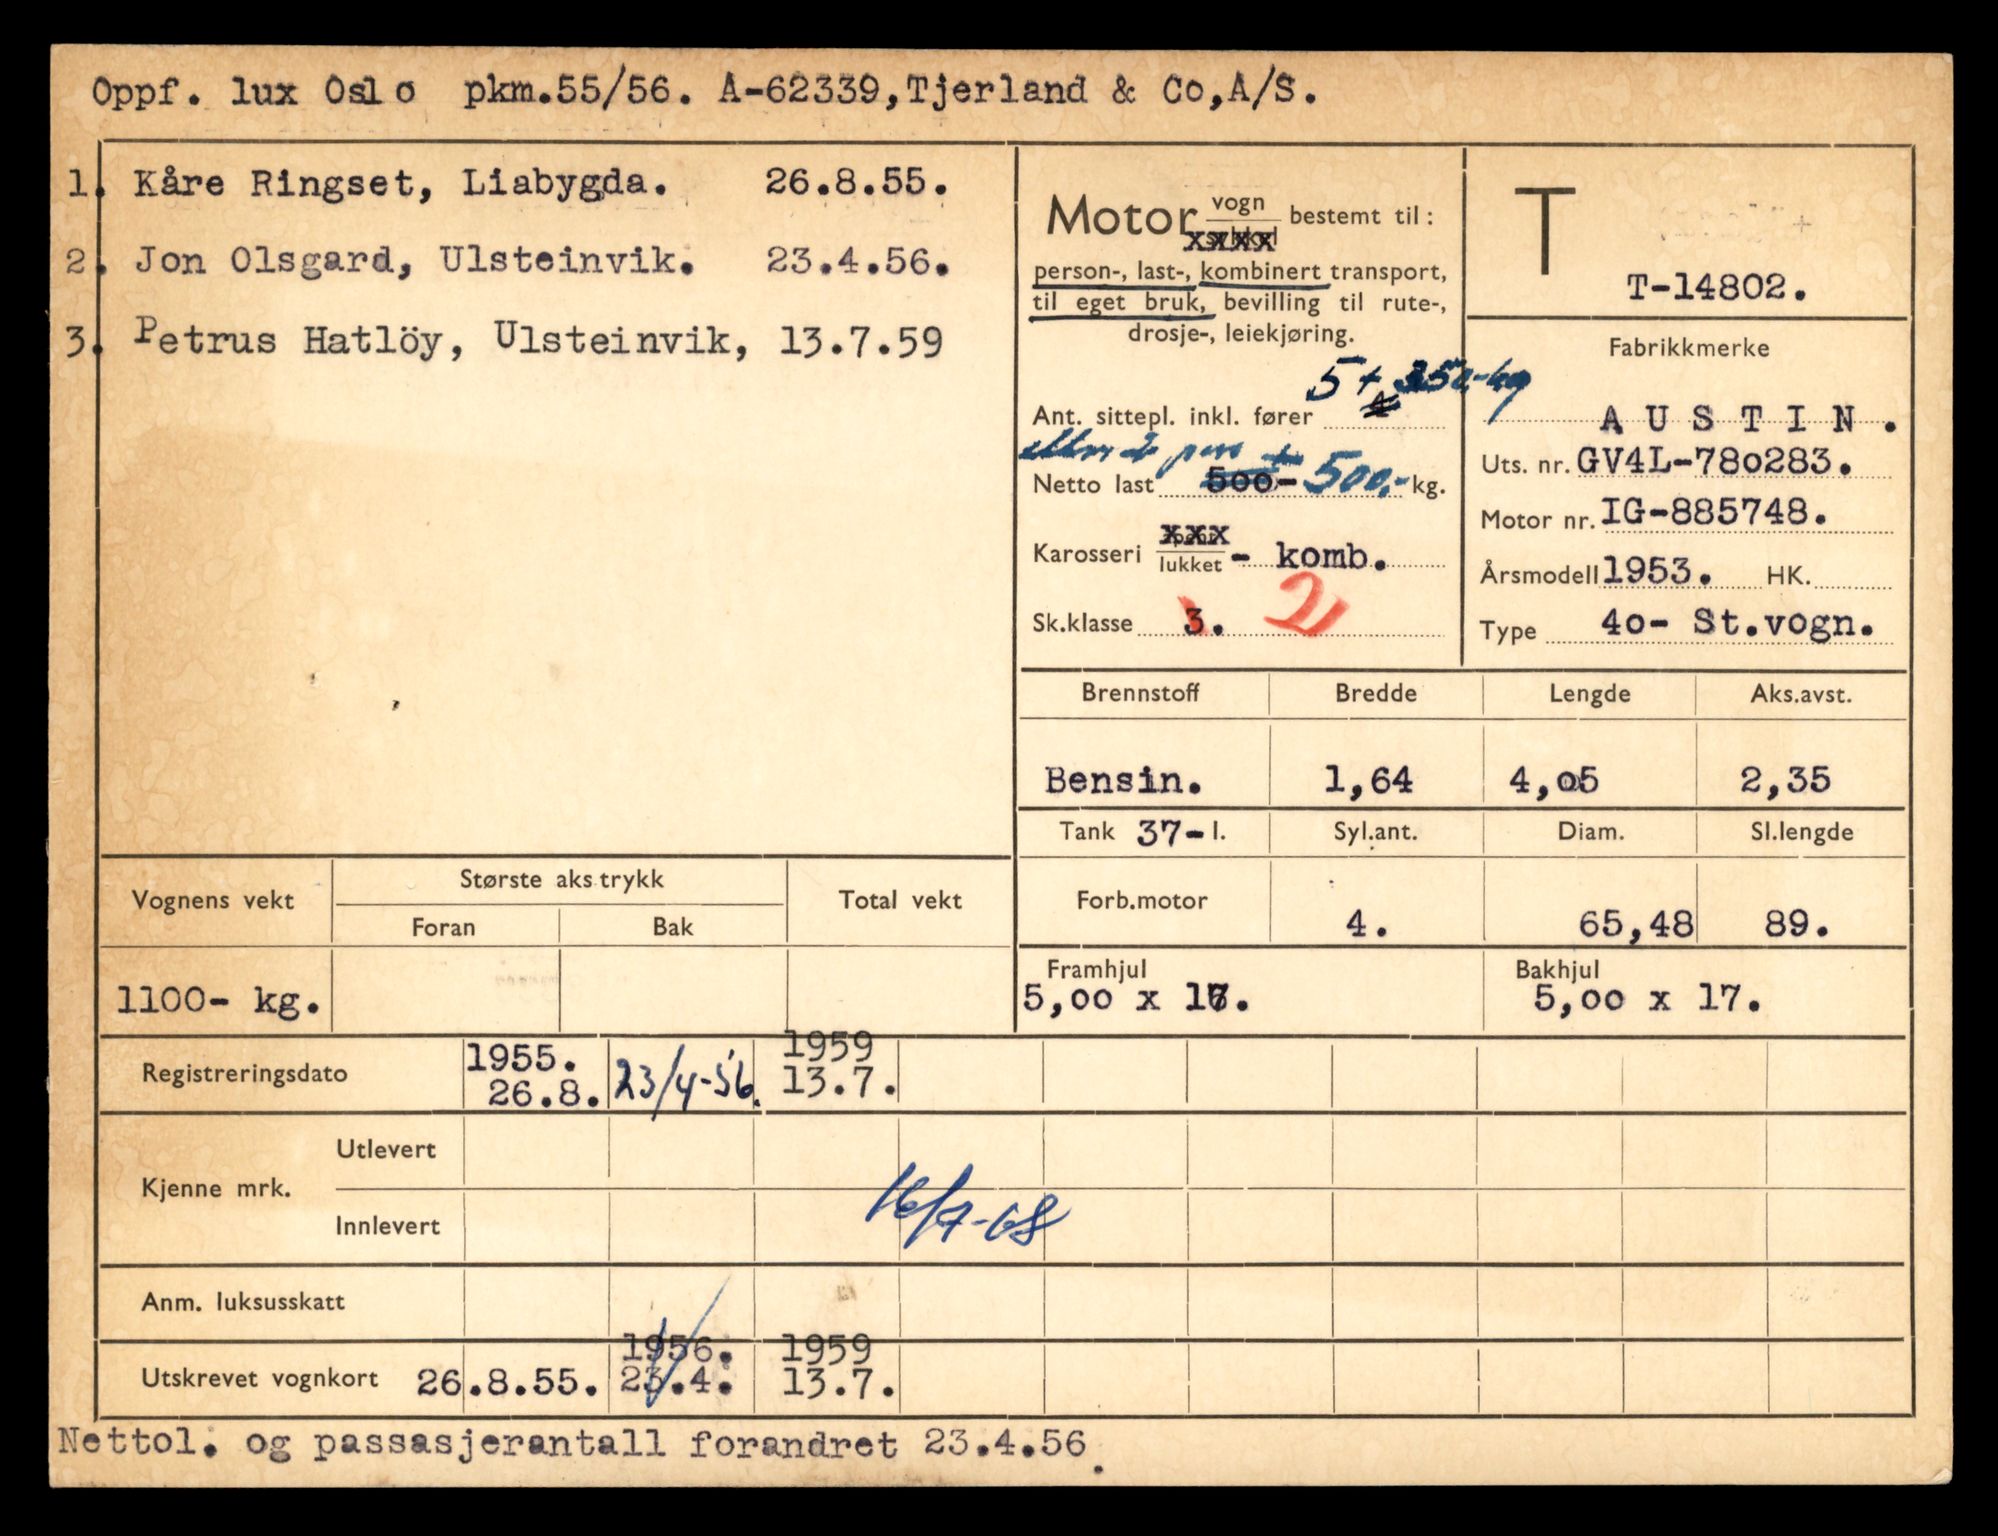 Oppf. lux Oslo pkm.55/56. A-62339,Tjerland & Co,A/S.
1. Kåre Ringset, Liabygda. 26.8.55.
2. Jon Olsgard, Ulsteinvik. 23.4.56.
3. Petrus Hatlöy, Ulsteinvik, 13.7.59
Motor vogn bestemt til:
xxxx
person-, last-, kombinert transport,
til eget bruk, bevilling til rute-,
drosje-, leiekjøring.
5 + 350,-kg
Ant. sittepl. inkl. fører
eller 2 pers +
Netto last 500- 500,- kg.
xxx
Karosseri lukket - komb.
Sk.klasse 3. 2
T
T-14802.
Fabrikkmerke
AUSTIN.
Uts. nr. GV4L-780283.
Motor nr. IG-885748.
Årsmodell 1953. HK.
Type 40- St.vogn.
Brennstoff Bredde Lengde Aks.avst.
Bensin. 1,64 4,05 2,35
Tank 37- l. Syl.ant. Diam. Sl.lengde
Forb.motor 4. 65,48 89.
Framhjul Bakhjul
5,00 x 17. 5,00 x 17.
Vognens vekt Største aks.trykk Total vekt
Foran Bak
1100- kg.
Registreringsdato 1955. 26.8. 23/4-56. 1959 13.7.
Kjenne mrk. Utlevert
Innlevert 16/7-68
Anm. luksusskatt
Utskrevet vognkort 26.8.55. 1956. 23.4. 1959 13.7.
Nettol. og passasjerantall forandret 23.4.56.